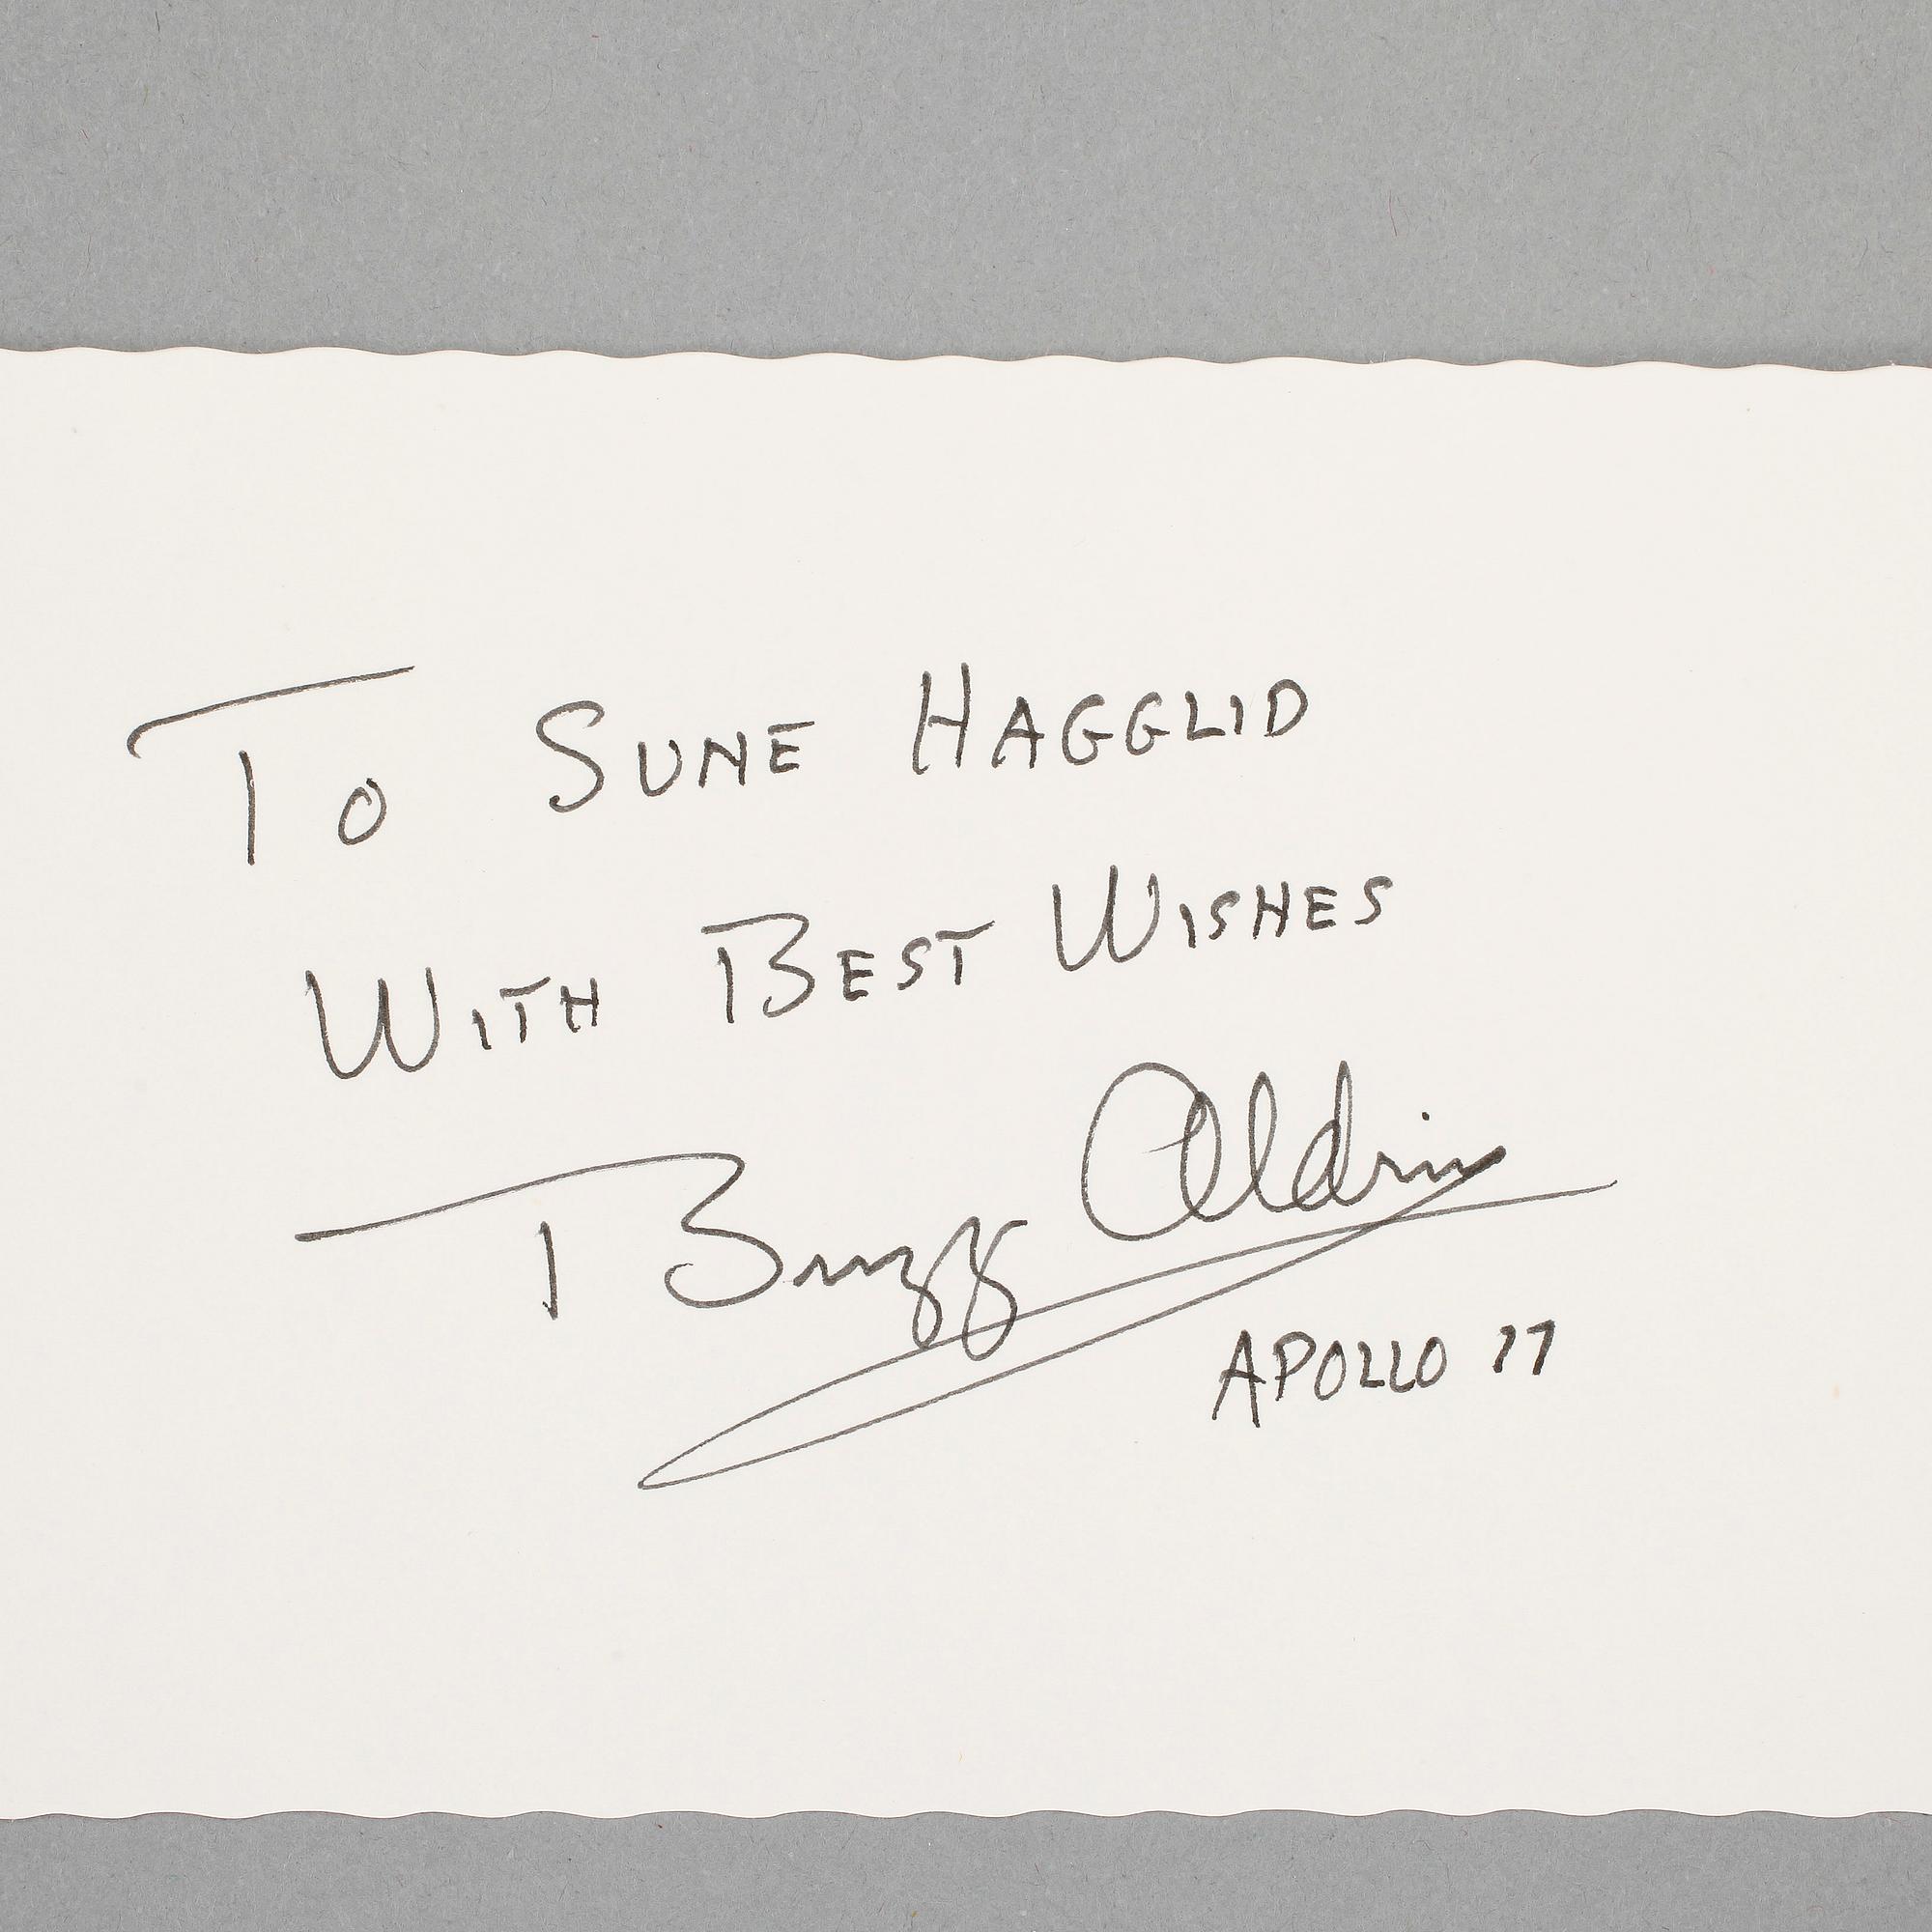 To SUNE HAGGLID
WITH BEST WISHES
Buzz Aldrin
APOLLO 11